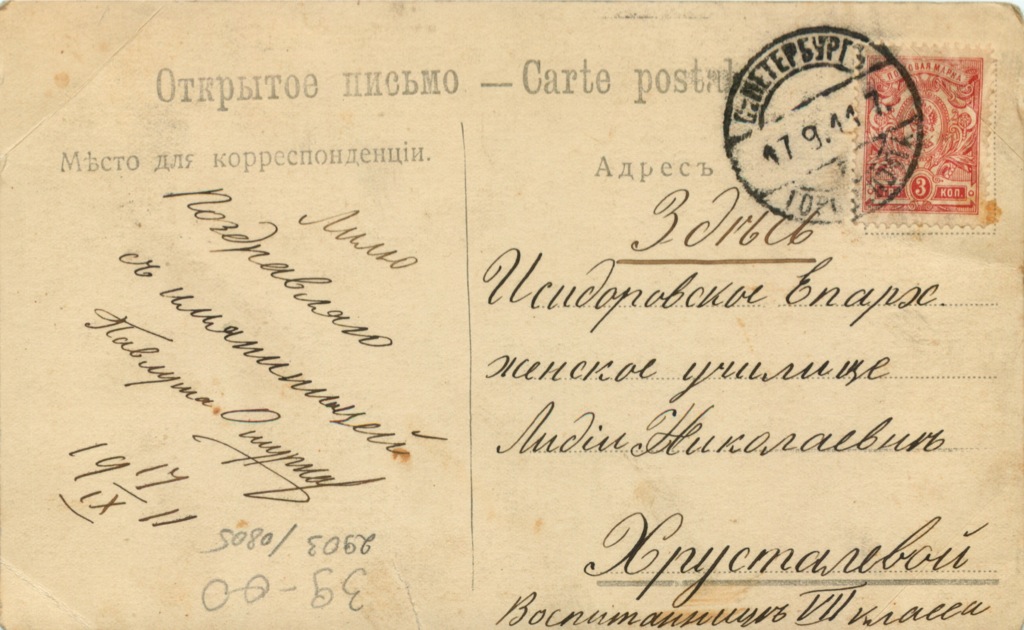 Открытое письмо — Carte postale
Мѣсто для корреспонденціи.
Лилю
Поздравляю
съ имянинницей
Павлуша
19 17/IX 11
2903/0805
39-00
Адресъ
С-ПЕТЕРБУРГЪ
17.9.11 7.
ПОЧТОВАЯ МАРКА
3 КОП.
Здѣсь
Исидоровское Епарх.
женское училище
Лидіи Николаевнѣ
Хрусталевой
Воспитанницѣ VII класса